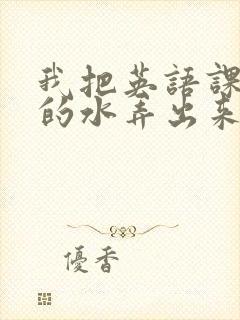 我把英語課
的水弄出来
優香